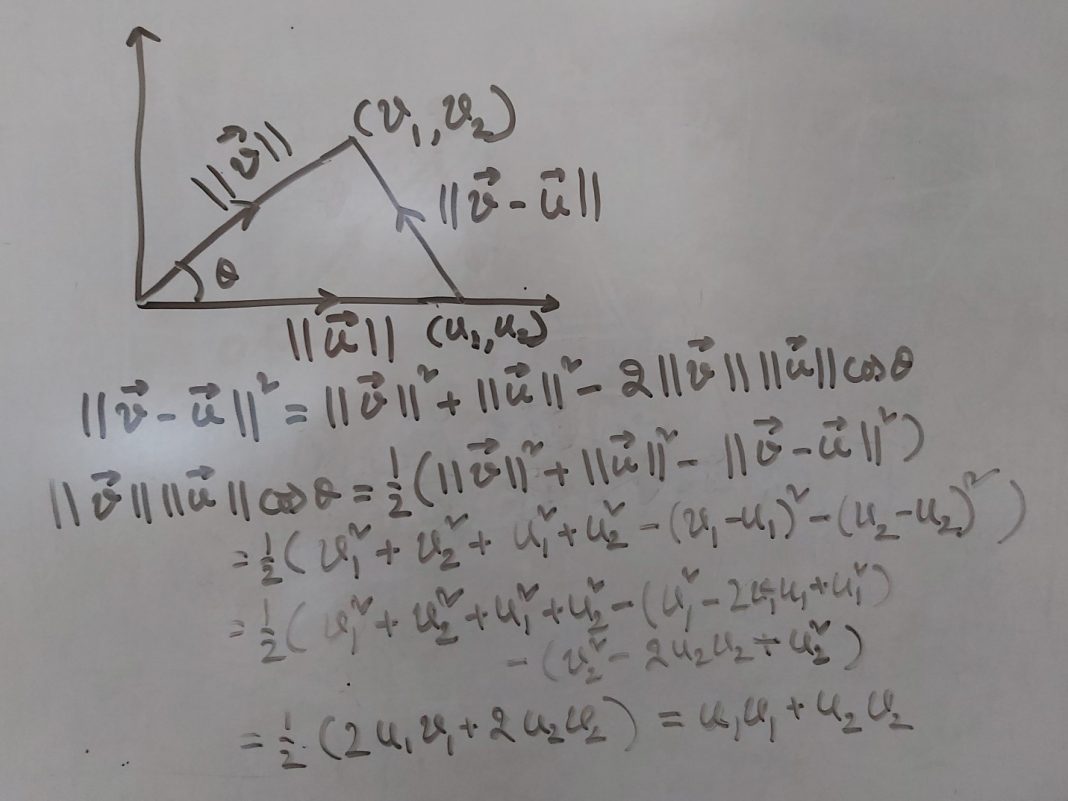 (v₁, v₂)
||v⃗||
||v⃗ - u⃗||
θ
||u⃗||
(u₁, u₂)
||v⃗ - u⃗||² = ||v⃗||² + ||u⃗||² - 2||v⃗|| ||u⃗|| cos θ
||v⃗|| ||u⃗|| cos θ = ½(||v⃗||² + ||u⃗||² - ||v⃗ - u⃗||²)
= ½(v₁² + v₂² + u₁² + u₂² - (v₁ - u₁)² - (v₂ - u₂)²)
= ½(v₁² + v₂² + u₁² + u₂² - (v₁² - 2v₁u₁ + u₁²)
- (v₂² - 2u₂v₂ + u₂²)
= ½(2u₁v₁ + 2u₂v₂) = u₁v₁ + u₂v₂